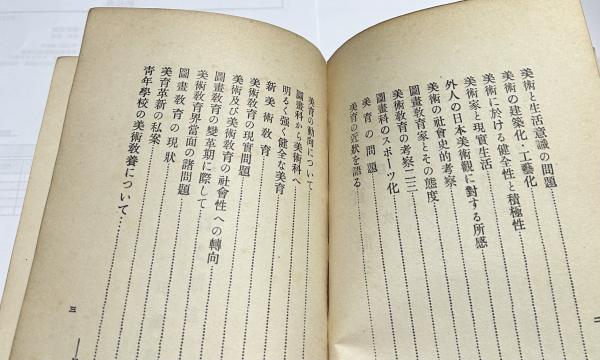 美術と生活意識の問題
美術の建築化・工藝化
美術に於ける健全性と積極性
美術家と現實生活
外人の日本美術觀に對する所感
美術の社會史的考察
圖畫敎育家とその態度
美術敎育の考察二三
圖畫科のスポーツ化
美育の問題
美育の近狀を語る
二
美育の動向について
圖畫科から美術科へ
明るく强く健全な美育
新美術敎育
美術敎育の現實問題
美術及び美術敎育の社會性への轉向
圖畫敎育の變革期に際して
美術敎育界當面の諸問題
圖畫敎育の現狀
美育革新の私案
靑年學校の美術敎養について
三